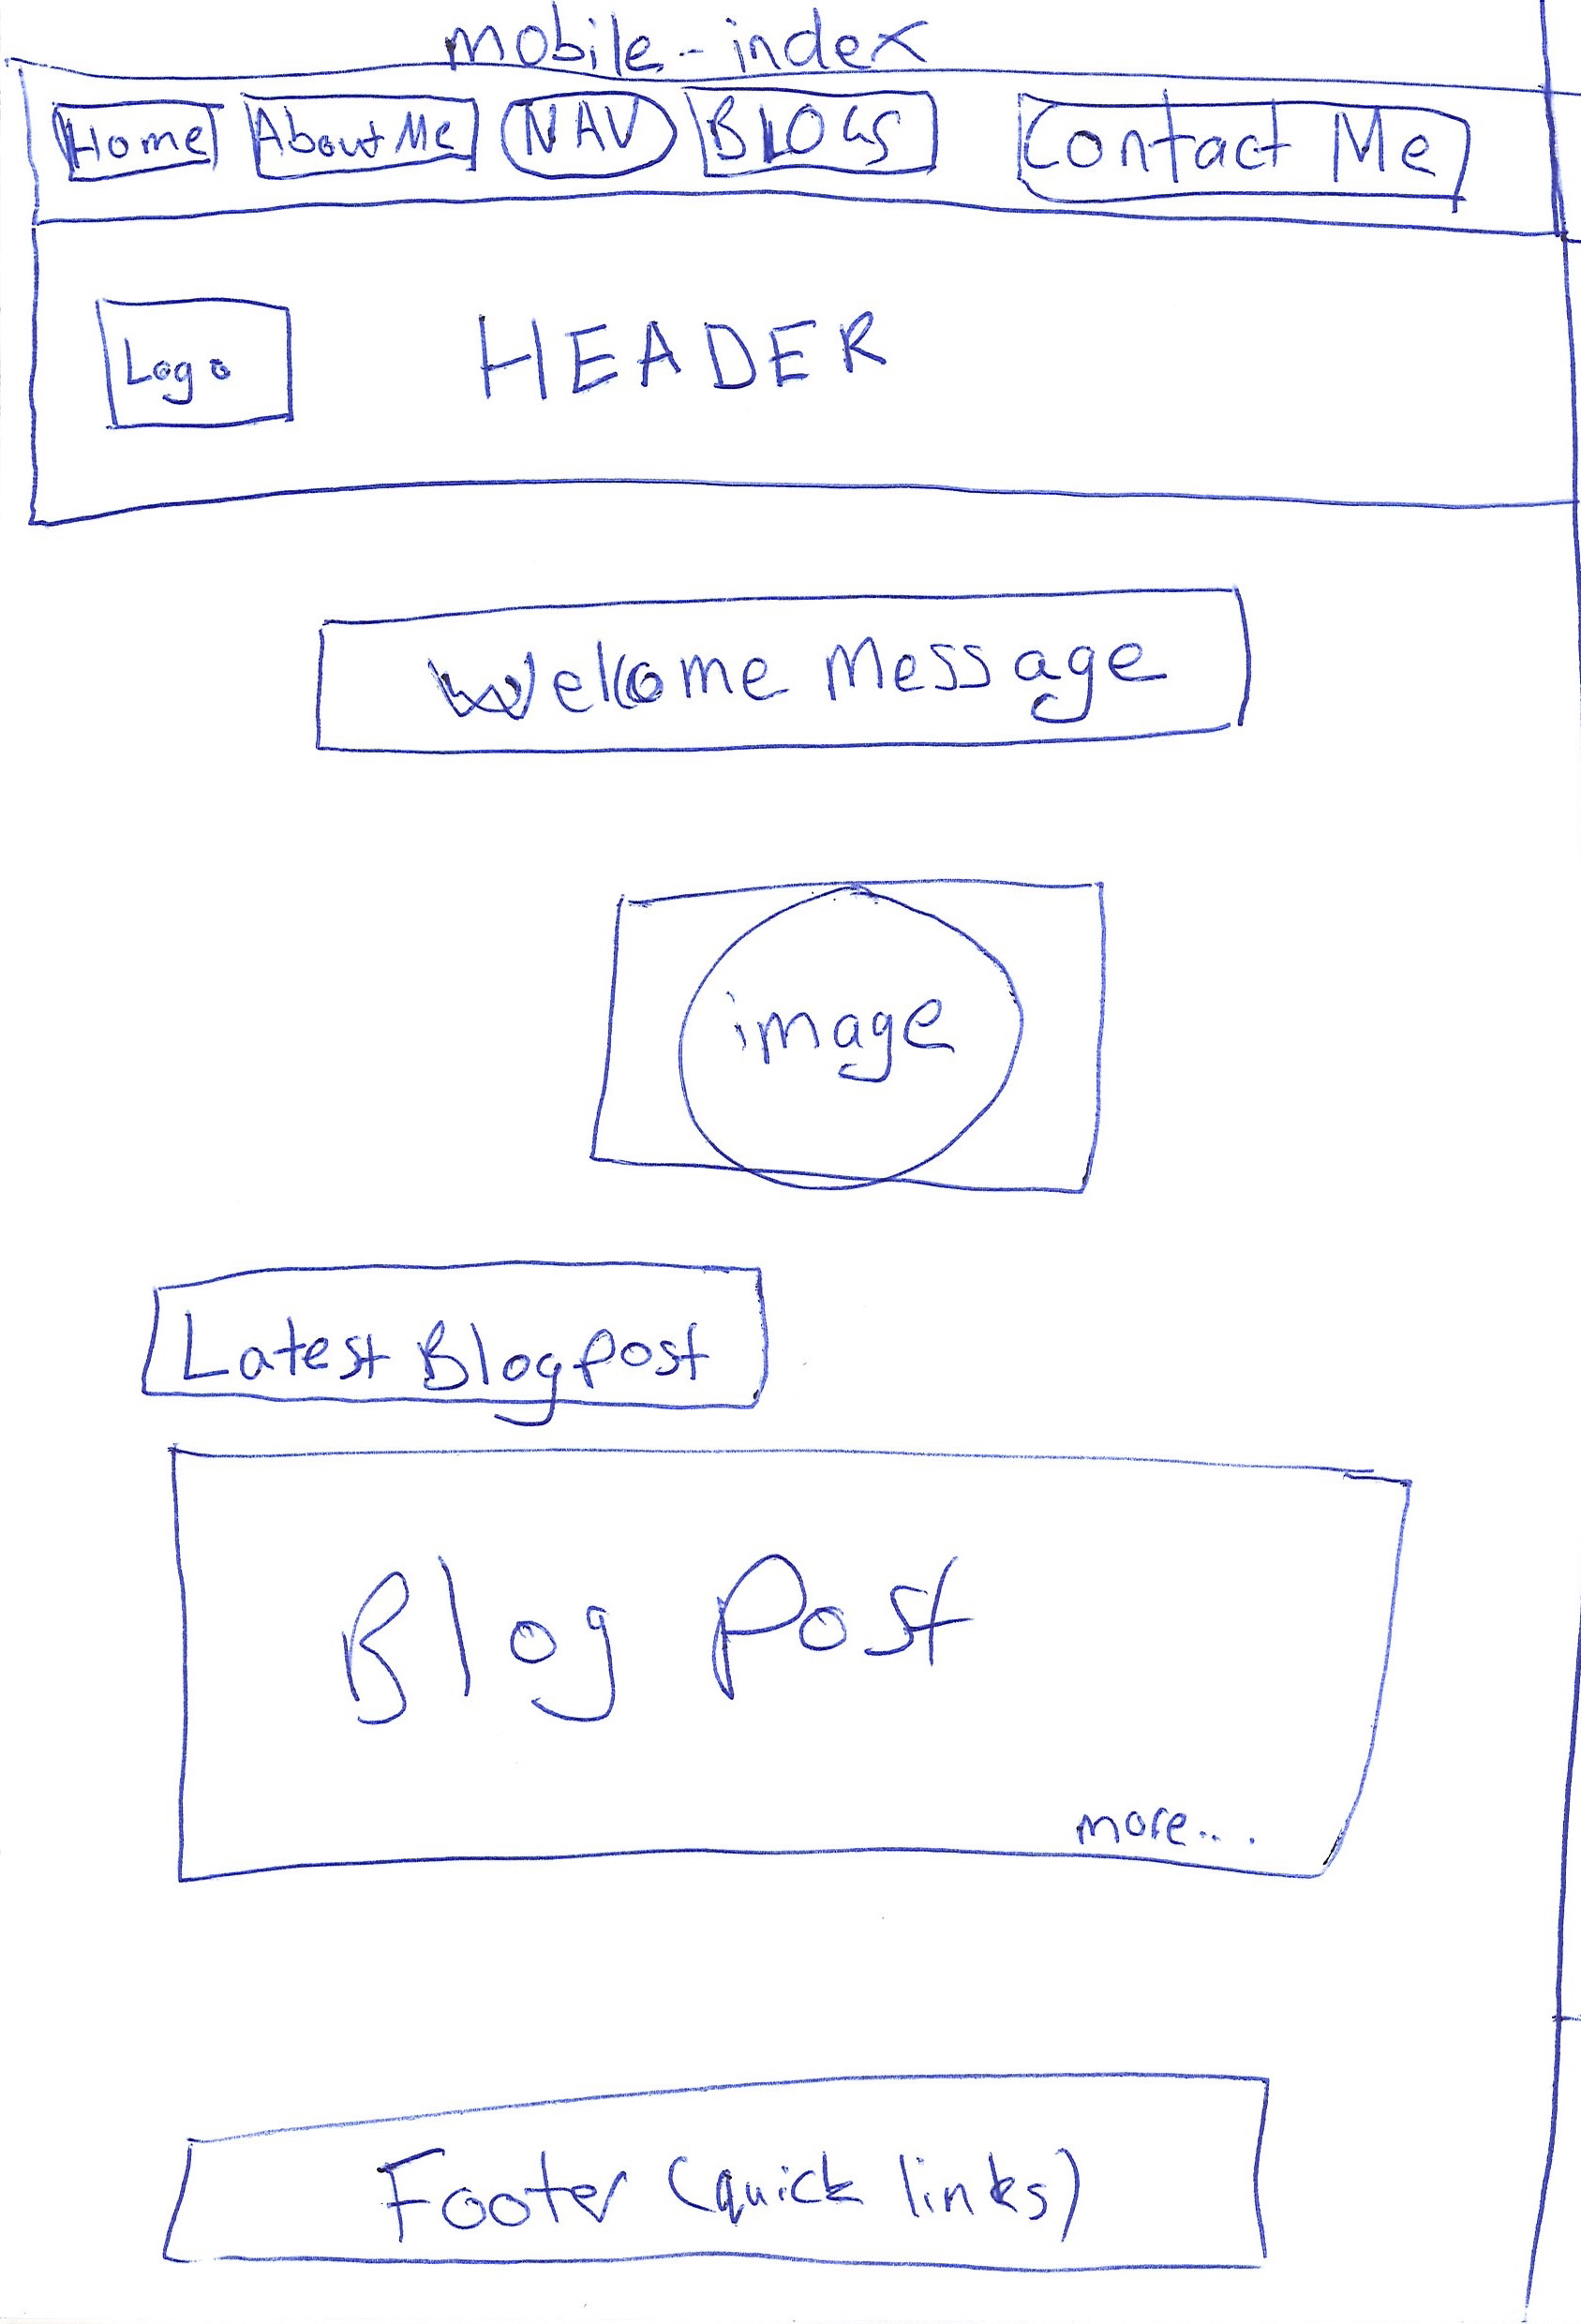 mobile-index
Home About Me NAV BLOGS Contact Me
Logo HEADER
Welcome Message
image
Latest Blog post
Blog Post
more...
Footer (quick links)